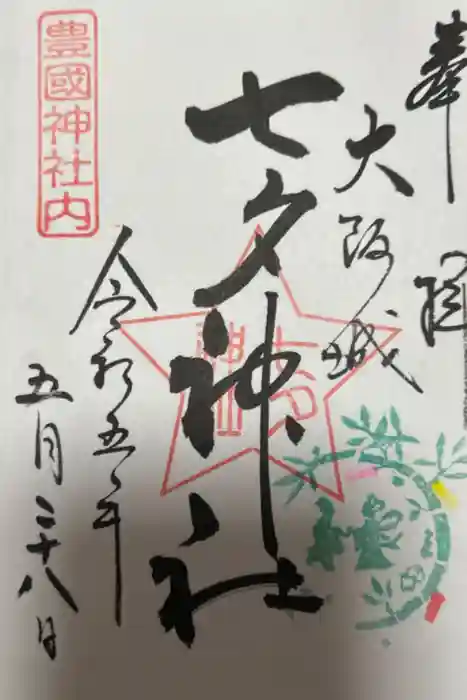 奉拝
大阪城
七夕神社
令和五年
五月二十八日
豊國神社内